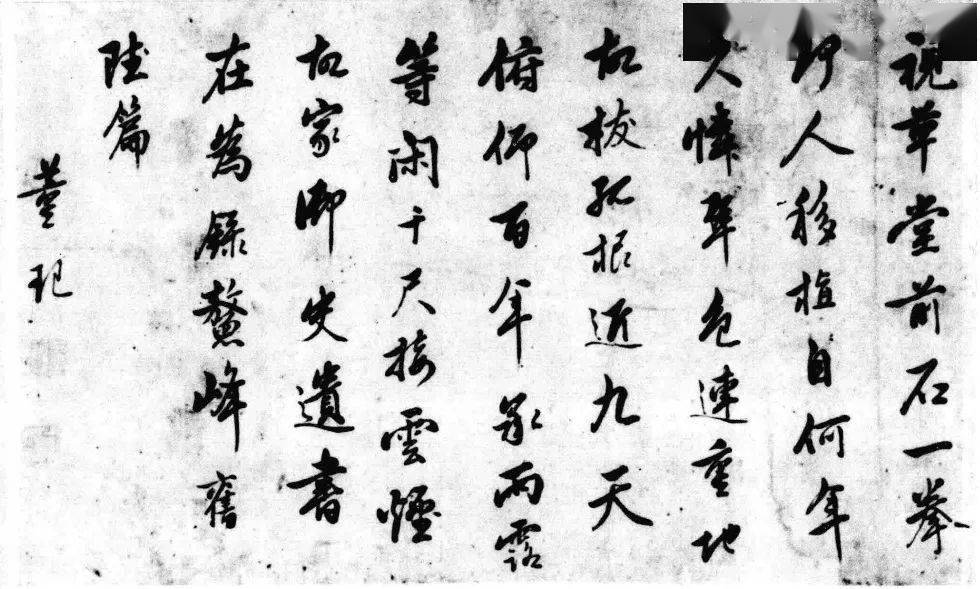 視草堂前石一拳
何人移植自何年
久憐翠色連重地
故拔孤根近九天
俯仰百年承雨露
等閑千尺接雲煙
故家御史遺書
在為錄鰲峰舊
陸篇
董玘